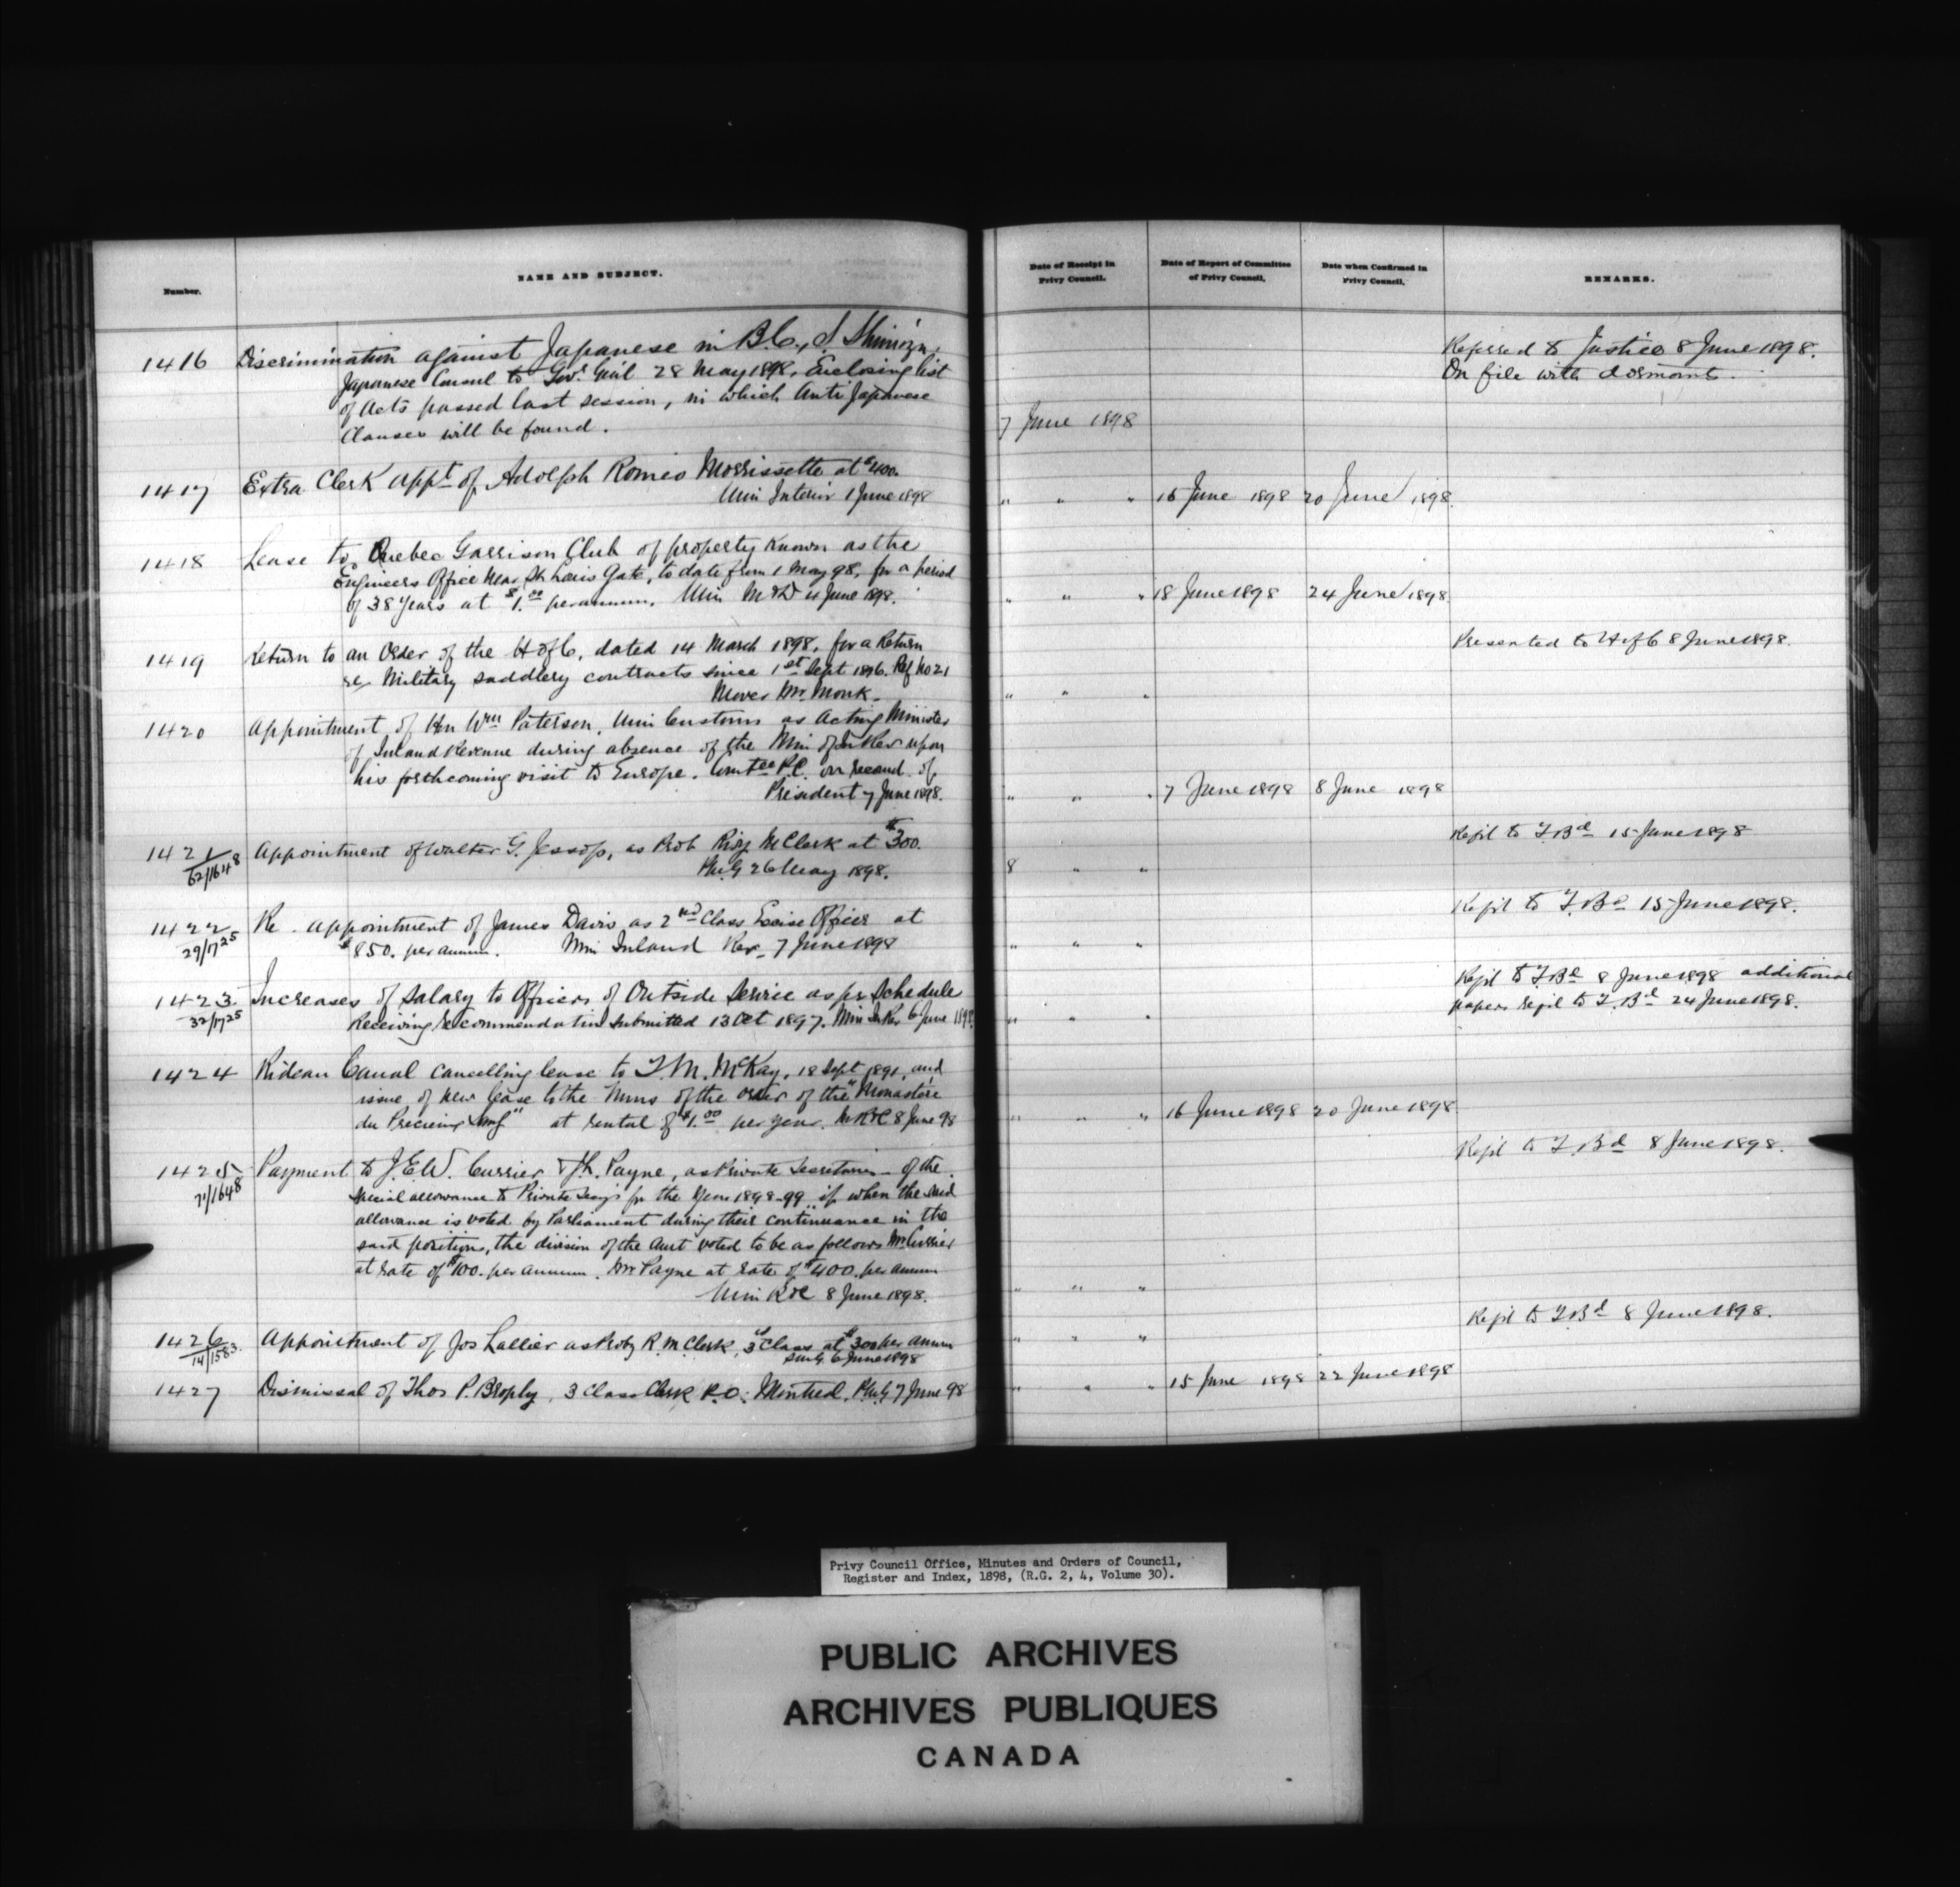 Number.
NAME AND SUBJECT.
Date of Receipt in Privy Council.
Date of Report of Committee of Privy Council.
Date when Confirmed in Privy Council.
REMARKS.
1416 Discrimination against Japanese in B.C., S. Shimizu,
Japanese Consul to Govr Genl 28 May 1898, Enclosing list
of Acts passed last session, in which Anti Japanese
Clauses will be found.
7 June 1898
Referred to Justice 8 June 1898.
On file with dormants.
1417 Extra Clerk appt of Adolph Romeo Morrissette at $400.
Min Interior 1 June 1898
" " " 16 June 1898 20 June 1898
1418 Lease to Quebec Garrison Club of property known as the
Engineers Office near St Louis Gate, to date from 1 May 98, for a period
of 38 years at $1.00 per annum. Min M&D 4 June 1898.
" " " 18 June 1898 24 June 1898
1419 Return to an Order of the H of C, dated 14 March 1898, for a Return
re Military saddlery contracts since 1st Sept 1896. Ref No 21
Mover Mr. Monk.
" " "
Presented to H of C 8 June 1898.
1420 Appointment of Hn Wm Paterson, Min Customs as Acting Minister
of Inland Revenue during absence of the Min of In Rev upon
his forthcoming visit to Europe. Comtee P.C. on recomd of
President 7 June 1898.
" " " 7 June 1898 8 June 1898
1421 Appointment of Walter G. Jessop, as Prob Rwy M Clerk at $300.
62/1648
P.M.G 26 May 1898.
8 " "
Ref'd to T. Bd 15 June 1898
1422 Re appointment of James Davis as 2nd Class Excise Officer at
29/1725
$850. per annum. Min Inland Rev 7 June 1898
" " "
Ref'd to T. Bd 15 June 1898.
1423 Increases of salary to Officers of Outside Service as per Schedule
32/1725
Receiving recommendation submitted 13 Oct 1897. Min In Rev 6 June 1898
" " "
Ref'd to T. Bd 8 June 1898 additional
papers ref'd to T. Bd 24 June 1898.
1424 Rideau Canal cancelling lease to T. M. McKay, 18 Sept 1891, and
issue of new lease to the Nuns of the order of the "Monastere
du Precieux Sang" at rental of $1.00 per year. M R&C 8 June 98
" " " 16 June 1898 20 June 1898
1425 Payment to J.E.W. Currier & J.L. Payne, as Private Secretaries of the
71/1648
Special allowance to Private Secys for the year 1898-99 if when the said
allowance is voted by Parliament during their continuance in the
said position, the division of the amt voted to be as follows Mr Currier
at rate of $100. per annum. Mr Payne at rate of $400. per annum
Min R&C 8 June 1898.
" " "
Ref'd to T Bd 8 June 1898.
1426 Appointment of Jos Lallier as Proby R. M. Clerk, 3d Class at $300 per annum
14/1583
P.M.G. 6 June 1898
" " "
Ref'd to T. Bd 8 June 1898.
1427 Dismissal of Thos P. Brophy, 3 Class Clerk P.O. Montreal. P.M.G. 7 June 98
" " " 15 June 1898 22 June 1898
Privy Council Office, Minutes and Orders of Council,
Register and Index, 1898, (R.G. 2, 4, Volume 30).
PUBLIC ARCHIVES
ARCHIVES PUBLIQUES
CANADA